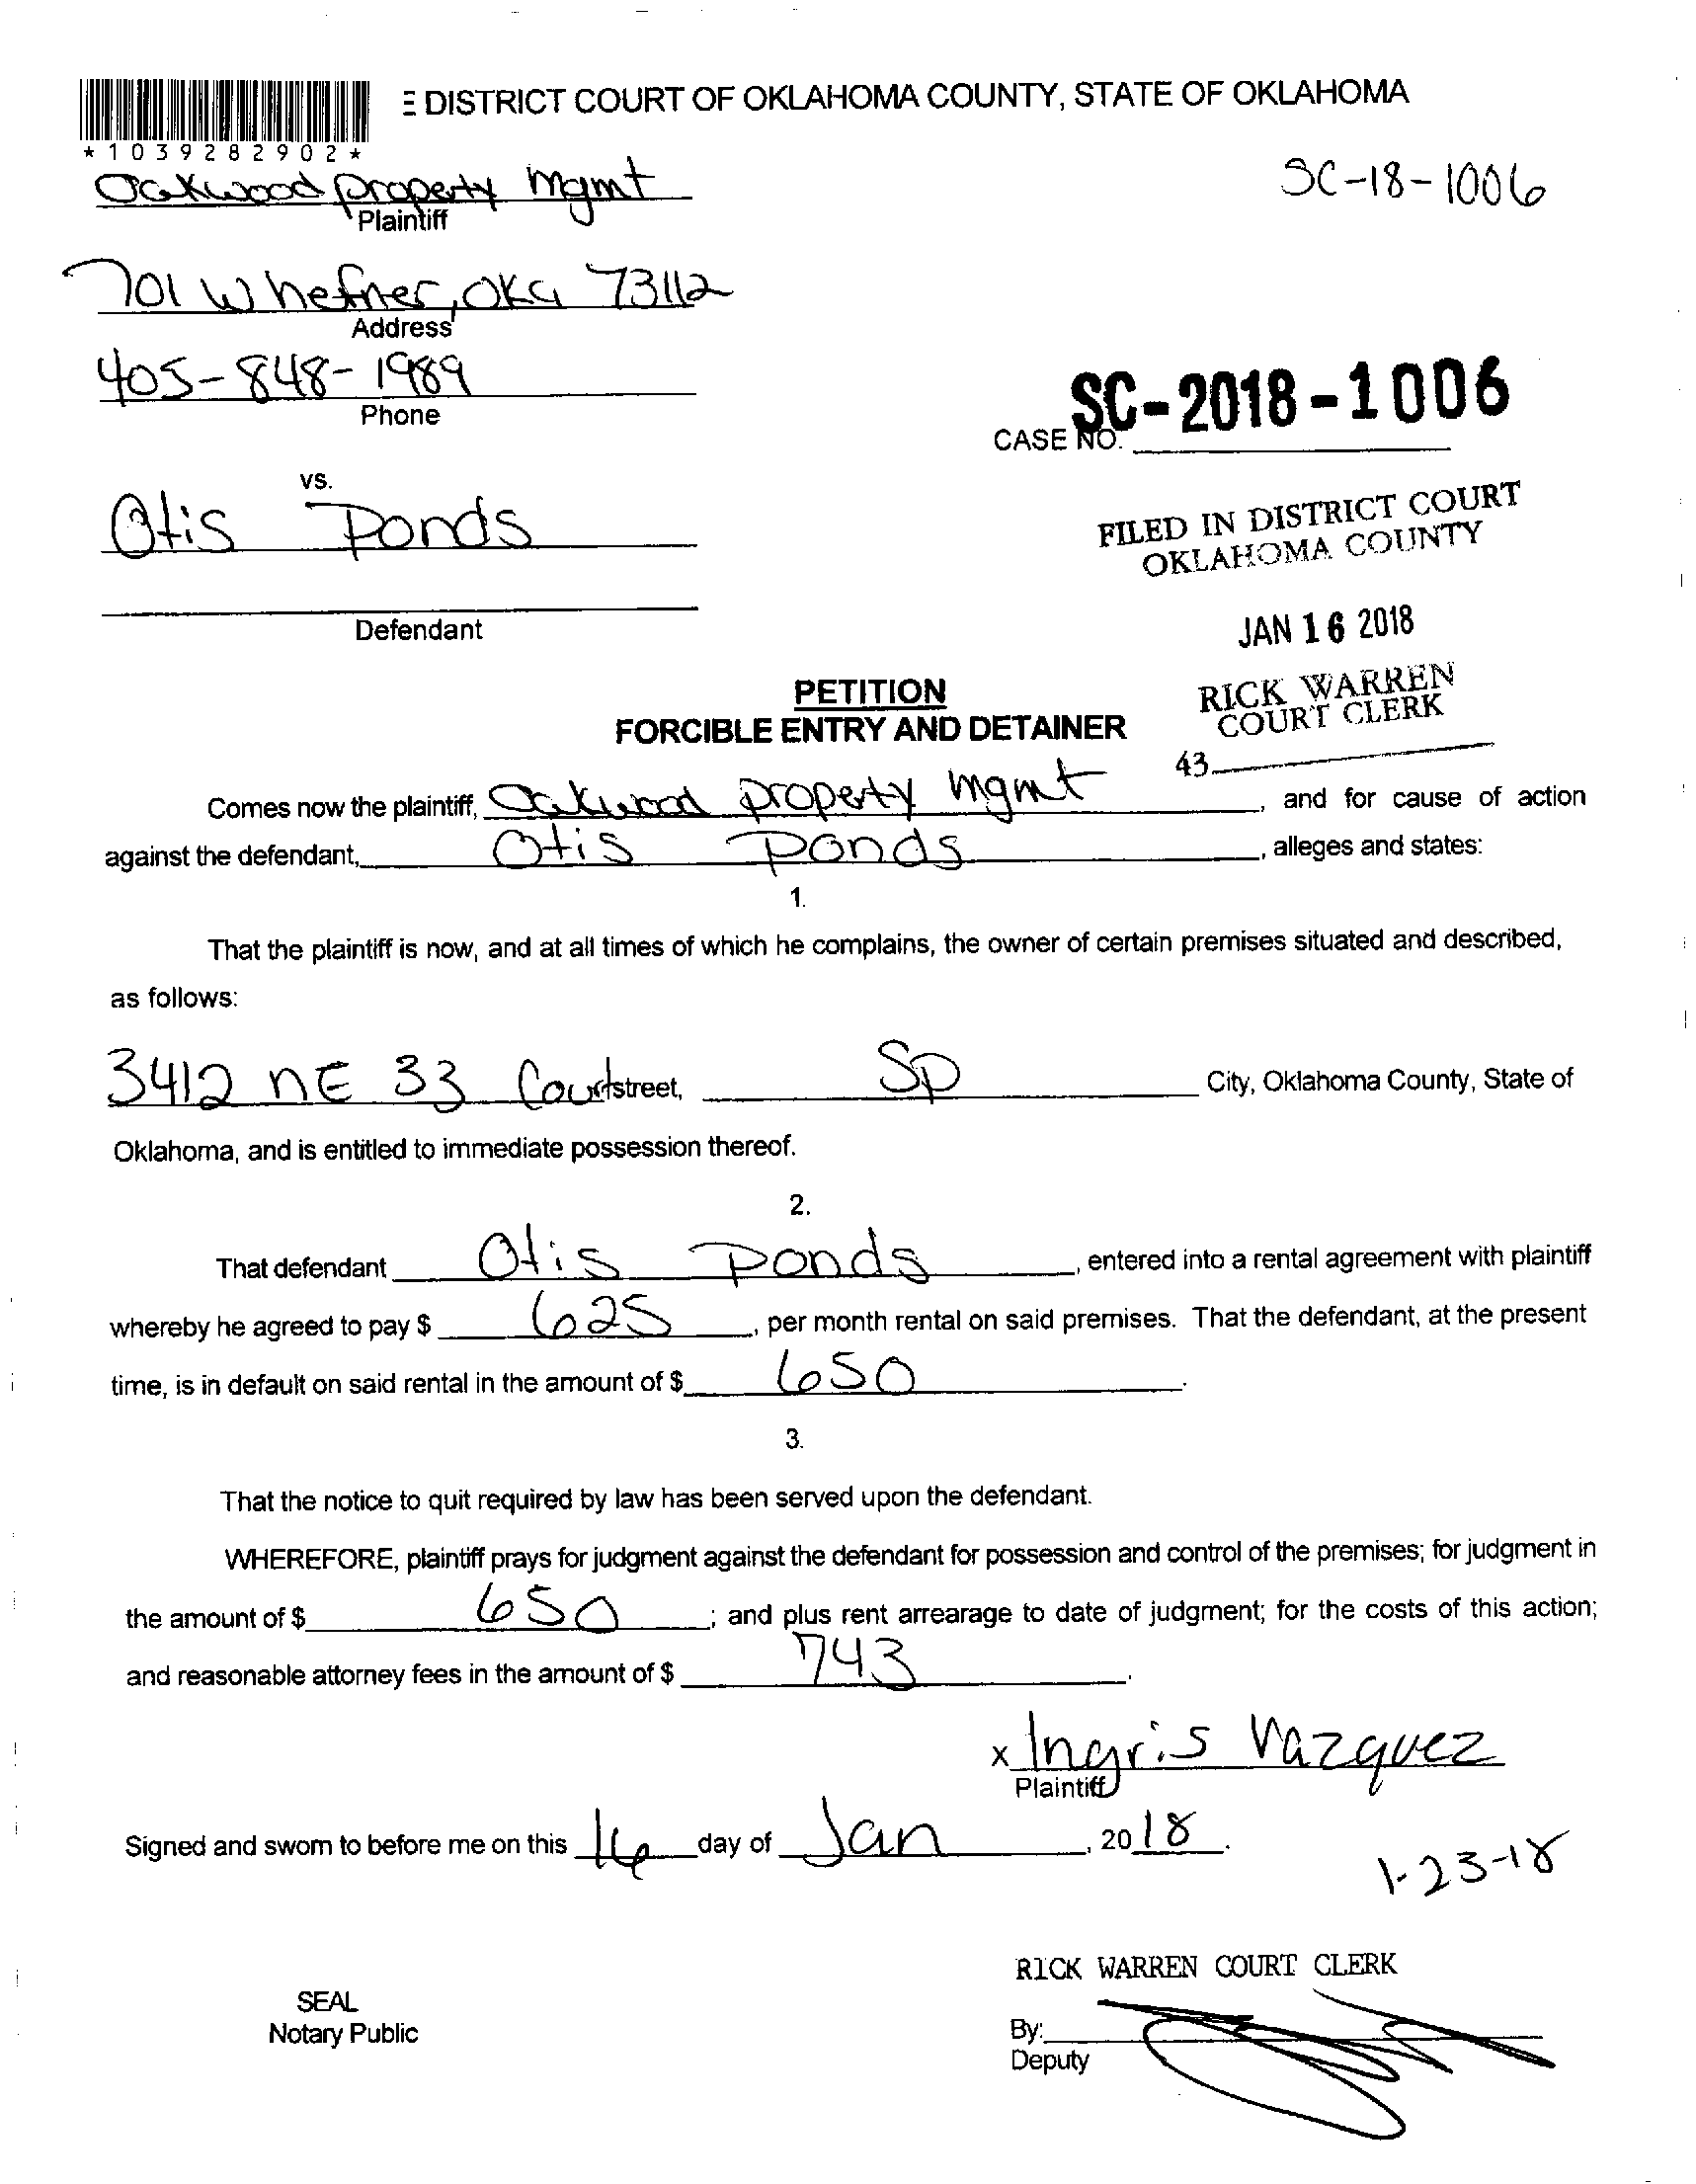 E DISTRICT COURT OF OKLAHOMA COUNTY, STATE OF OKLAHOMA
*1039282902*
Oakwood property mgmt
Plaintiff
SC-18-1006
701 W hefner, OKC 73112
Address
405-848-1989
Phone
SC-2018-1006
CASE NO.
vs.
Otis Ponds
FILED IN DISTRICT COURT
OKLAHOMA COUNTY
Defendant
JAN 16 2018
PETITION
RICK WARREN
COURT CLERK
FORCIBLE ENTRY AND DETAINER
43
Comes now the plaintiff, Oakwood property mgmt, and for cause of action
against the defendant, Otis Ponds, alleges and states:
1.
That the plaintiff is now, and at all times of which he complains, the owner of certain premises situated and described,
as follows:
3412 NE 33 Court street, SP City, Oklahoma County, State of
Oklahoma, and is entitled to immediate possession thereof.
2.
That defendant Otis Ponds, entered into a rental agreement with plaintiff
whereby he agreed to pay $ 625, per month rental on said premises. That the defendant, at the present
time, is in default on said rental in the amount of $ 650.
3.
That the notice to quit required by law has been served upon the defendant.
WHEREFORE, plaintiff prays for judgment against the defendant for possession and control of the premises; for judgment in
the amount of $ 650; and plus rent arrearage to date of judgment; for the costs of this action;
and reasonable attorney fees in the amount of $ 743.
x Ingris Vazquez
Plaintiff
Signed and sworn to before me on this 16 day of Jan, 2018.
1-23-18
RICK WARREN COURT CLERK
SEAL
Notary Public
By:
Deputy